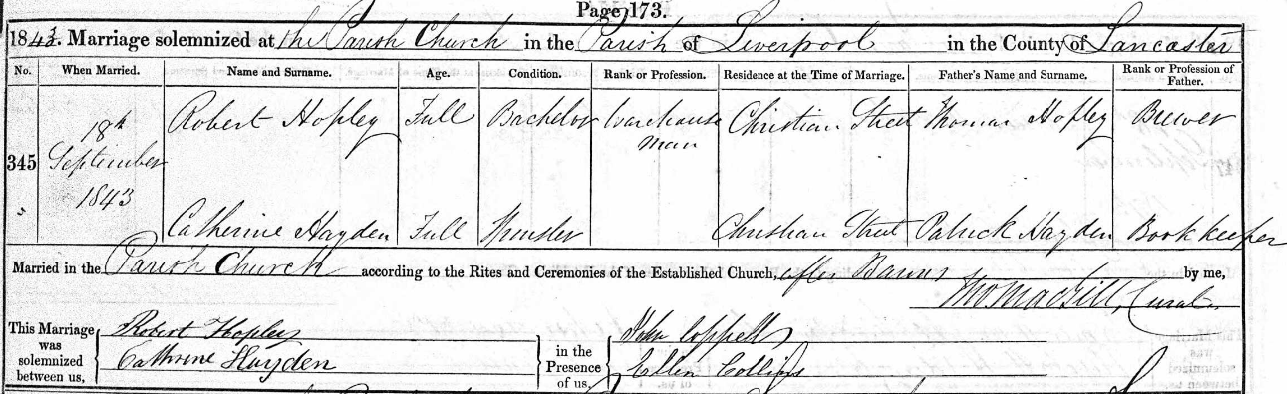 Page 173.
1843. Marriage solemnized at the Parish Church in the Parish of Liverpool in the County of Lancaster
No. When Married. Name and Surname. Age. Condition. Rank or Profession. Residence at the Time of Marriage. Father's Name and Surname. Rank or Profession of Father.
345 18th September 1843 Robert Hopley Full Bachelor Warehouse man Christian Street Thomas Hopley Brewer
Catherine Hayden Full Spinster Christian Street Patrick Hayden Book keeper
Married in the Parish Church according to the Rites and Ceremonies of the Established Church, after Banns by me,
Curate
This Marriage was solemnized between us, Robert Hopley in the Presence of us, John Coppell
Cathrine Hayden Ellen Collins